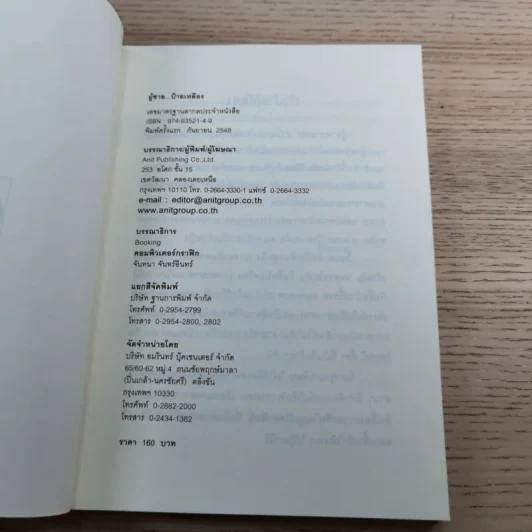 ผู้ชาย...ป้ายเหลือง
เลขมาตรฐานสากลประจำหนังสือ
ISBN : 974-93521-4-9
พิมพ์ครั้งแรก กันยายน 2548
บรรณาธิการ/ผู้พิมพ์/ผู้โฆษณา
Anit Publishing Co.,Ltd.
253 อโศก ชั้น 15
เขตวัฒนา คลองเตยเหนือ
กรุงเทพฯ 10110 โทร. 0-2664-3330-1 แฟกซ์ 0-2664-3332
e-mail : editor@anitgroup.co.th
www.anitgroup.co.th
บรรณาธิการ
Booking
คอมพิวเตอร์กราฟิก
จันทนา จันทร์อินทร์
แยกสีจัดพิมพ์
บริษัท ฐานการพิมพ์ จำกัด
โทรศัพท์ 0-2954-2799
โทรสาร 0-2954-2800, 2802
จัดจำหน่ายโดย
บริษัท อมรินทร์ บุ๊คเซนเตอร์ จำกัด
65/60-62 หมู่ 4 ถนนชัยพฤกษ์มาลา
(ปิ่นเกล้า-นครชัยศรี) ตลิ่งชัน
กรุงเทพฯ 10330
โทรศัพท์ 0-2882-2000
โทรสาร 0-2434-1382
ราคา 160 บาท